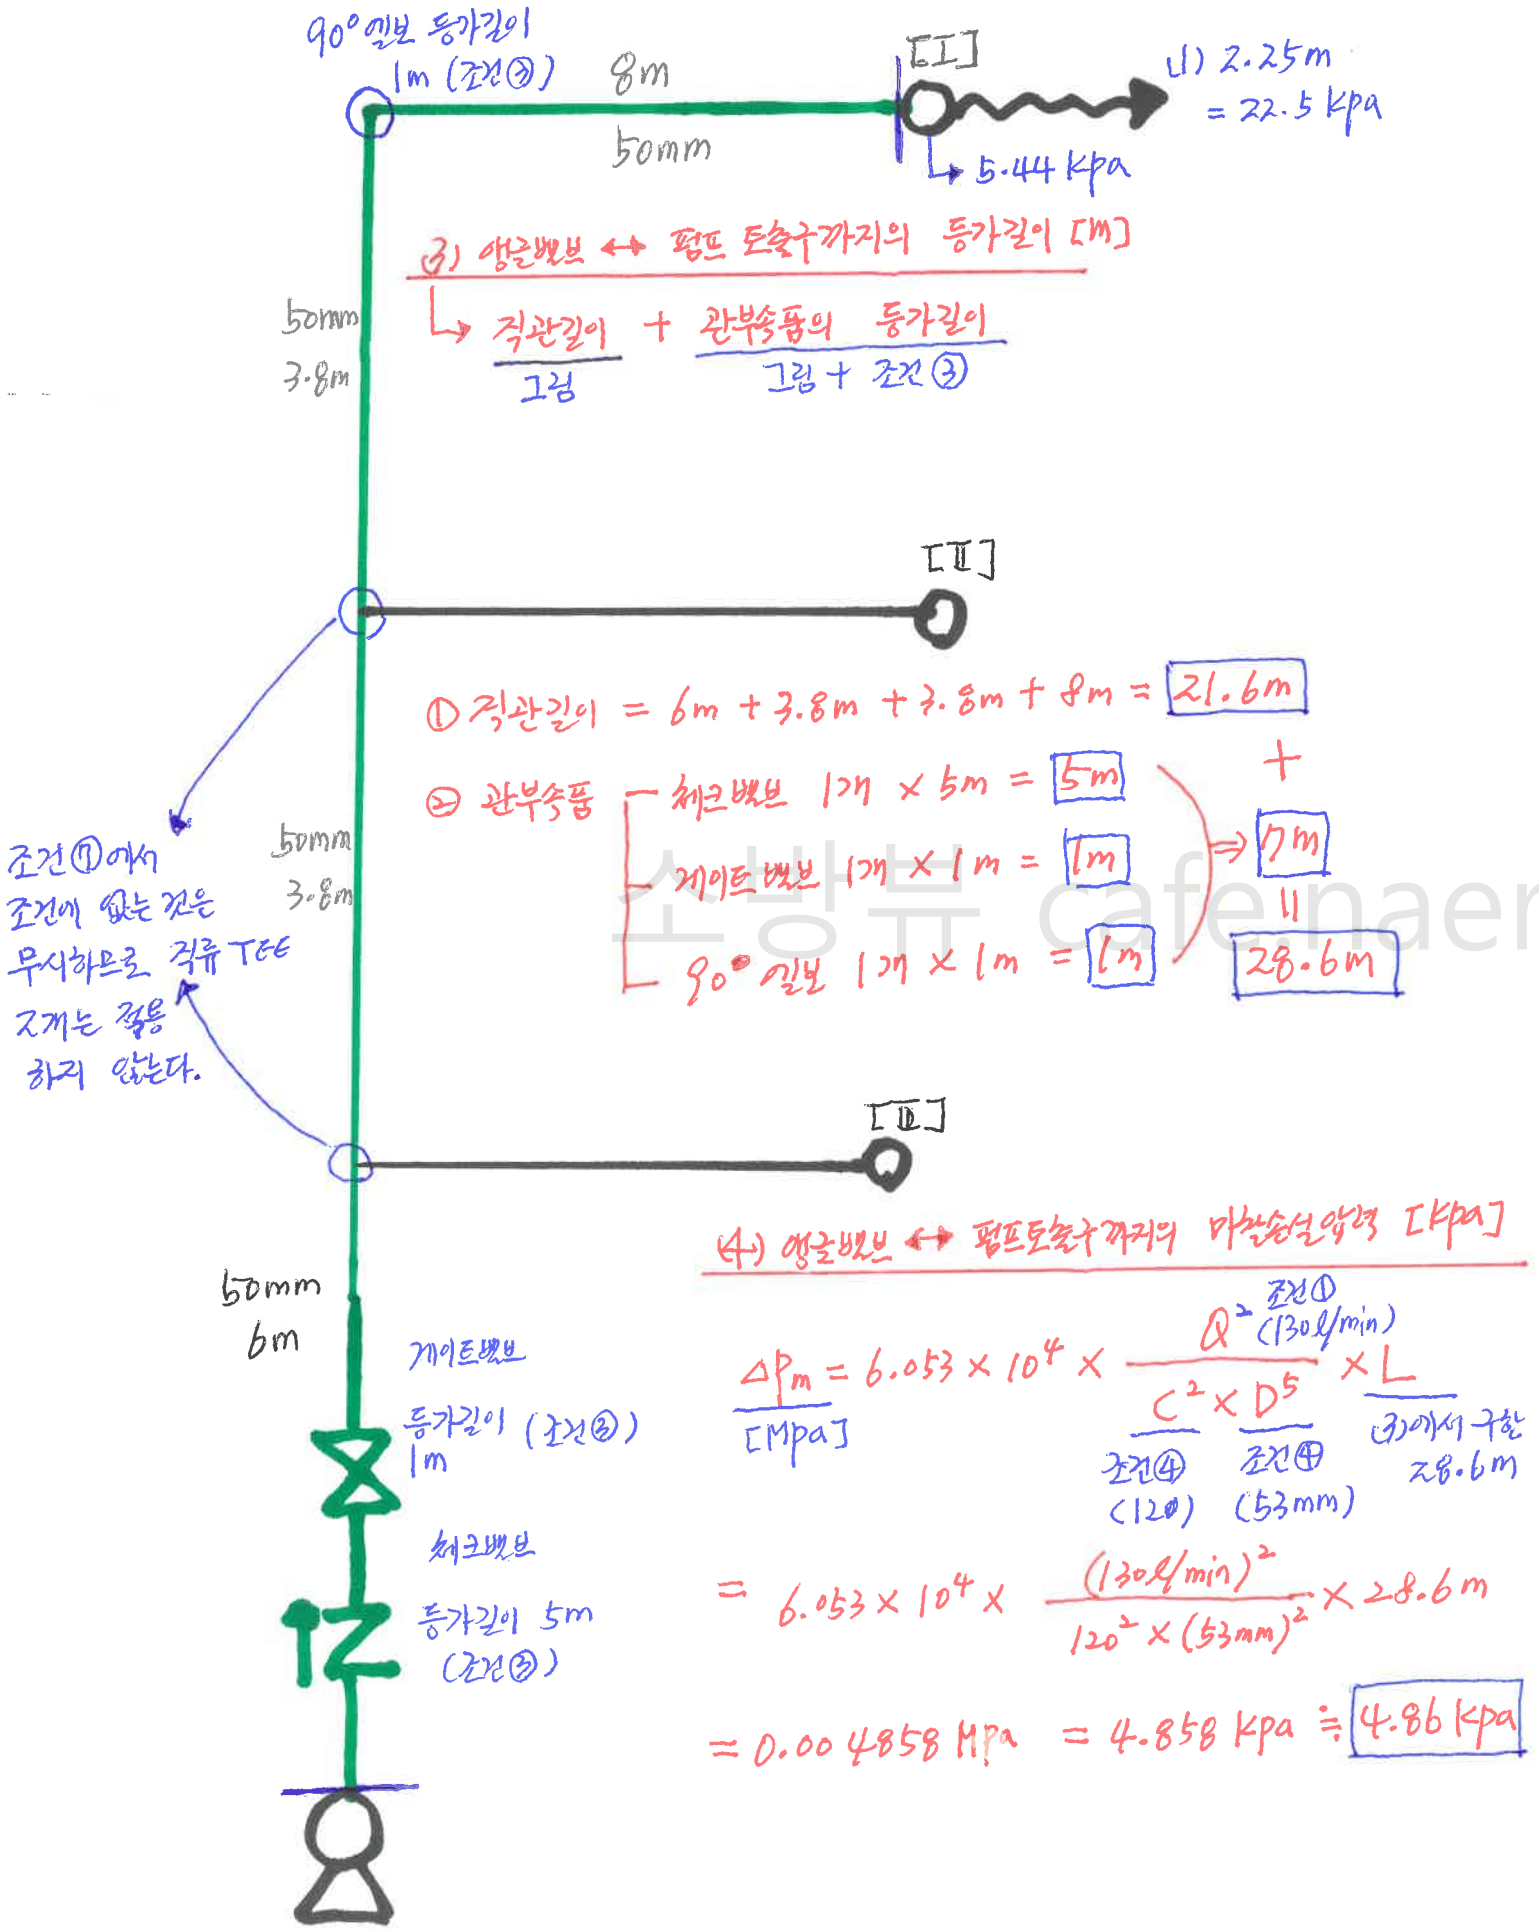 90° 엘보 등가길이
1m (조건③)
8m
50mm
[Ⅰ]
(1) 2.25m
= 22.5 kpa
5.44 kpa
(3) 앵글밸브 ↔ 펌프 토출구까지의 등가길이 [m]
직관길이 + 관부속품의 등가길이
그림
그림 + 조건③
50mm
3.8m
[Ⅱ]
① 직관길이 = 6m + 3.8m + 3.8m + 8m = 21.6m
+
② 관부속품
체크밸브 1개 × 5m = 5m
게이트밸브 1개 × 1m = 1m
90° 엘보 1개 × 1m = 1m
⇒ 7m
=
28.6m
소방뷰 cafe.naer
50mm
3.8m
조건⑦에서
조건에 없는 것은
무시하므로 직류 TEE
2개는 적용
하지 않는다.
[Ⅲ]
50mm
6m
게이트밸브
등가길이 (조건③)
1m
체크밸브
등가길이 5m
(조건③)
(4) 앵글밸브 ↔ 펌프토출구까지의 마찰손실압력 [kpa]
조건①
(130ℓ/min)
△Pm = 6.053 × 10⁴ × Q² / C² × D⁵ × L
[Mpa]
조건④
(120)
조건④
(53mm)
(3)에서 구한
28.6m
= 6.053 × 10⁴ × (130ℓ/min)² / 120² × (53mm)² × 28.6m
= 0.004858 Mpa = 4.858 kpa ≒ 4.86 kpa